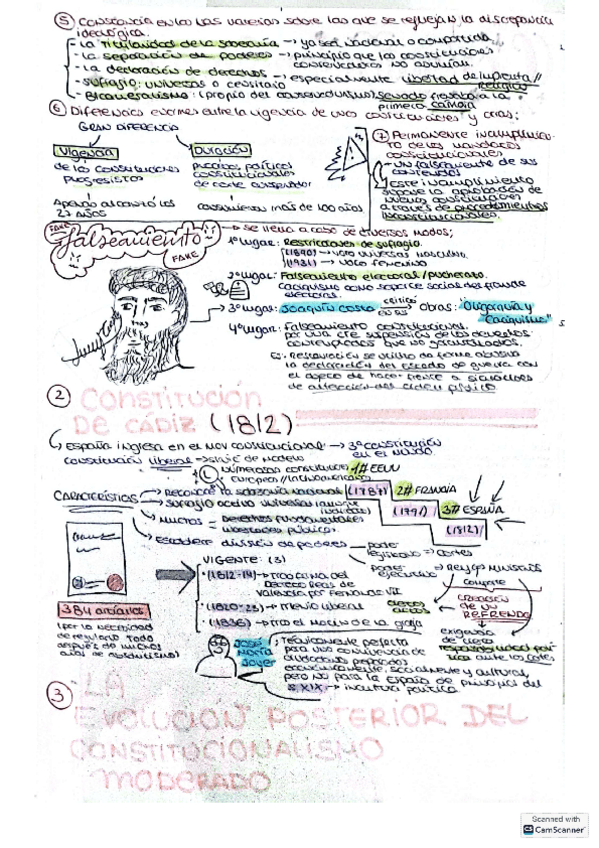 ⑤ Constancia en las materias sobre las que se reflejan la discrepancia
ideológica.
- La titularidad de la soberanía → ya sea nacional o compartida
- La separación de poderes → principio que las constituciones
conservadoras no asumían.
- La declaración de derechos → especialmente libertad de imprenta//
religiosa
- Sufragio: universal o censitario
- Bicameralismo: (propio del conservadurismo) senado frente a la
primera cámara
⑥ Diferencias enormes entre la vigencia de unas constituciones y otras:
GRAN DIFERENCIA
Vigencia
de las constituciones
progresistas
Apenas alcanzó los
27 años
Duración
políticos
constitucionales
de corte conservador
más de 100 años
⑦ Permanente incumplimien-
to de los mandatos
constitucionales
un falseamiento de sus
contenidos
Este incumplimiento
supone la aprobación de
nuevas constituciones
a través de procedimientos
inconstitucionales.
FAKE
falseamiento
FAKE
→ se lleva a cabo de diversos modos:
1º lugar: Restricciones de sufragio.
(1890) → voto universal masculino.
(1931) → voto femenino
2º lugar: Falseamiento electoral/pucherazo.
Caciquismo como soporte social del fraude
electoral.
3º lugar: Joaquín Costa → Obras: "Oligarquía y
Caciquismo"
4º lugar: Falseamiento constitucional.
por una suspensión de los derechos
contemplados que no garantizados.
Ej: Restauración se utilizó de forma abusiva
la declaración del estado de guerra con
el objeto de hacer frente a situaciones
de alteración del orden público
② CONSTITUCIÓN
DE CÁDIZ (1812)
↳ España ingresa en el mov constitucional → 3ª constitución
en el mundo.
constitución liberal → sirve de modelo
numerosas constituc
europeas/latinoamericanas
1# EEUU
(1787)
2# FRANCIA
(1791)
3# ESPAÑA
(1812)
CARACTERÍSTICAS → Reconoce la soberanía nacional
→ Sufragio activo universal
indirecto)
→ Muchos = derechos fundamentales
libertades públicas
→ Establece división de poderes → poder
legislativo → Cortes
poder
ejecutivo → Rey y ministros
comparte
CREACIÓN
DE UN
REFRENDO
exigencia
de cierta
responsabilidad polí-
tica ante las Cortes
384 artículos.
(por la necesidad
de regularlo todo
después de muchos
años de absolutismo)
VIGENTE: (3)
· (1812-14) → tras firma del
Decreto Real de
Valencia por Fernando VII
· (1820-23) → trienio liberal
· (1836) → tras el motín de la granja
José
María
Jover
: Técnicamente perfecta
para una convivencia de
ciudadanos preparados
económicamente, socialmente y cultural,
pero no para la España de principios del
S. XIX → incultura política
③ LA
EVOLUCIÓN POSTERIOR DEL
CONSTITUCIONALISMO
MODERADO
Scanned with
CamScanner